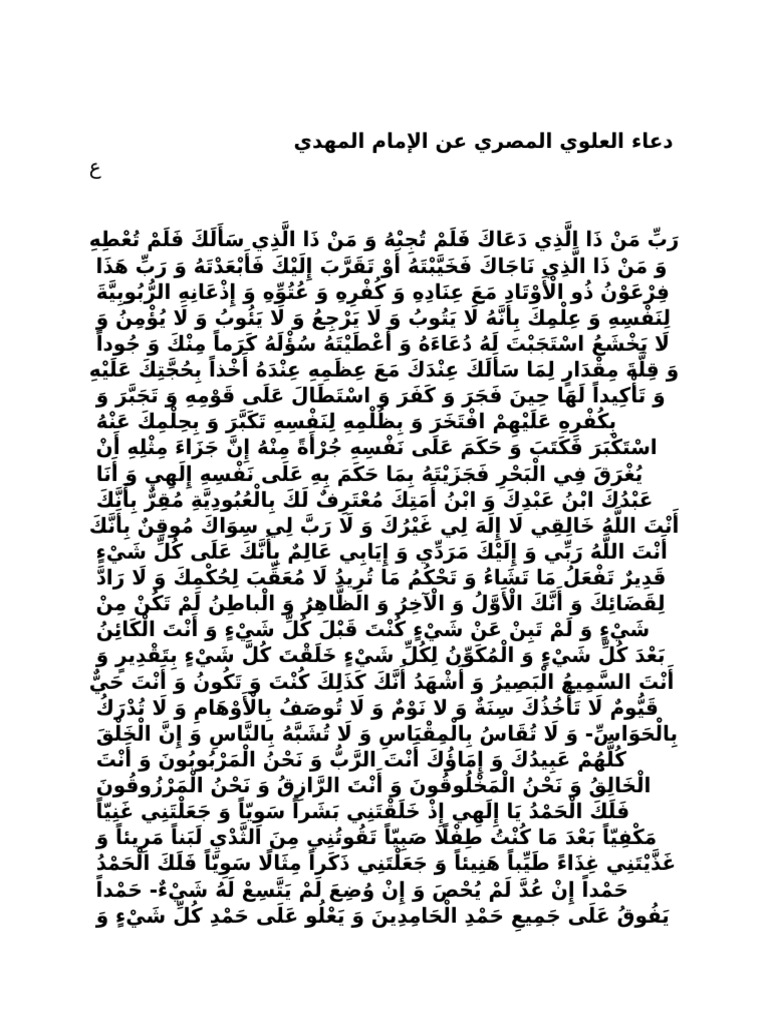 دعاء العلوي المصري عن الإمام المهدي
ع
رَبِّ مَنْ ذَا الَّذِي دَعَاكَ فَلَمْ تُجِبْهُ وَ مَنْ ذَا الَّذِي سَأَلَكَ فَلَمْ تُعْطِهِ
وَ مَنْ ذَا الَّذِي نَاجَاكَ فَخَيَّبْتَهُ أَوْ تَقَرَّبَ إِلَيْكَ فَأَبْعَدْتَهُ وَ رَبِّ هَذَا
فِرْعَوْنُ ذُو الْأَوْتَادِ مَعَ عِنَادِهِ وَ كُفْرِهِ وَ عُتُوِّهِ وَ إِذْعَانِهِ الرُّبُوبِيَّةَ
لِنَفْسِهِ وَ عِلْمِكَ بِأَنَّهُ لَا يَتُوبُ وَ لَا يَرْجِعُ وَ لَا يَئُوبُ وَ لَا يُؤْمِنُ وَ
لَا يَخْشَعُ اسْتَجَبْتَ لَهُ دُعَاءَهُ وَ أَعْطَيْتَهُ سُؤْلَهُ كَرَماً مِنْكَ وَ جُوداً
وَ قِلَّةَ مِقْدَارٍ لِمَا سَأَلَكَ عِنْدَكَ مَعَ عِظَمِهِ عِنْدَهُ أَخْذاً بِحُجَّتِكَ عَلَيْهِ
وَ تَأْكِيداً لَهَا حِينَ فَجَرَ وَ كَفَرَ وَ اسْتَطَالَ عَلَى قَوْمِهِ وَ تَجَبَّرَ وَ
بِكُفْرِهِ عَلَيْهِمْ افْتَخَرَ وَ بِظُلْمِهِ لِنَفْسِهِ تَكَبَّرَ وَ بِحِلْمِكَ عَنْهُ
اسْتَكْبَرَ فَكَتَبَ وَ حَكَمَ عَلَى نَفْسِهِ جُرْأَةً مِنْهُ إِنَّ جَزَاءَ مِثْلِهِ أَنْ
يُغْرَقَ فِي الْبَحْرِ فَجَزَيْتَهُ بِمَا حَكَمَ بِهِ عَلَى نَفْسِهِ إِلَهِي وَ أَنَا
عَبْدُكَ ابْنُ عَبْدِكَ وَ ابْنُ أَمَتِكَ مُعْتَرِفٌ لَكَ بِالْعُبُودِيَّةِ مُقِرٌّ بِأَنَّكَ
أَنْتَ اللَّهُ خَالِقِي لَا إِلَهَ لِي غَيْرُكَ وَ لَا رَبَّ لِي سِوَاكَ مُوقِنٌ بِأَنَّكَ
أَنْتَ اللَّهُ رَبِّي وَ إِلَيْكَ مَرَدِّي وَ إِيَابِي عَالِمٌ بِأَنَّكَ عَلَى كُلِّ شَيْءٍ
قَدِيرٌ تَفْعَلُ مَا تَشَاءُ وَ تَحْكُمُ مَا تُرِيدُ لَا مُعَقِّبَ لِحُكْمِكَ وَ لَا رَادَّ
لِقَضَائِكَ وَ أَنَّكَ الْأَوَّلُ وَ الْآخِرُ وَ الظَّاهِرُ وَ الْباطِنُ لَمْ تَكُنْ مِنْ
شَيْءٍ وَ لَمْ تَبِنْ عَنْ شَيْءٍ كُنْتَ قَبْلَ كُلِّ شَيْءٍ وَ أَنْتَ الْكَائِنُ
بَعْدَ كُلِّ شَيْءٍ وَ الْمُكَوِّنُ لِكُلِّ شَيْءٍ خَلَقْتَ كُلَّ شَيْءٍ بِتَقْدِيرٍ وَ
أَنْتَ السَّمِيعُ الْبَصِيرُ وَ أَشْهَدُ أَنَّكَ كَذَلِكَ كُنْتَ وَ تَكُونُ وَ أَنْتَ حَيٌّ
قَيُّومٌ لَا تَأْخُذُكَ سِنَةٌ وَ لا نَوْمٌ وَ لَا تُوصَفُ بِالْأَوْهَامِ وَ لَا تُدْرَكُ
بِالْحَوَاسِّ- وَ لَا تُقَاسُ بِالْمِقْيَاسِ وَ لَا تُشَبَّهُ بِالنَّاسِ وَ إِنَّ الْخَلْقَ
كُلَّهُمْ عَبِيدُكَ وَ إِمَاؤُكَ أَنْتَ الرَّبُّ وَ نَحْنُ الْمَرْبُوبُونَ وَ أَنْتَ
الْخَالِقُ وَ نَحْنُ الْمَخْلُوقُونَ وَ أَنْتَ الرَّازِقُ وَ نَحْنُ الْمَرْزُوقُونَ
فَلَكَ الْحَمْدُ يَا إِلَهِي إِذْ خَلَقْتَنِي بَشَراً سَوِيّاً وَ جَعَلْتَنِي غَنِيّاً
مَكْفِيّاً بَعْدَ مَا كُنْتُ طِفْلًا صَبِيّاً تَقُوتُنِي مِنَ الثَّدْيِ لَبَناً مَرِيئاً وَ
غَذَّيْتَنِي غِذَاءً طَيِّباً هَنِيئاً وَ جَعَلْتَنِي ذَكَراً مِثَالًا سَوِيّاً فَلَكَ الْحَمْدُ
حَمْداً إِنْ عُدَّ لَمْ يُحْصَ وَ إِنْ وُضِعَ لَمْ يَتَّسِعْ لَهُ شَيْءٌ- حَمْداً
يَفُوقُ عَلَى جَمِيعِ حَمْدِ الْحَامِدِينَ وَ يَعْلُو عَلَى حَمْدِ كُلِّ شَيْءٍ وَ